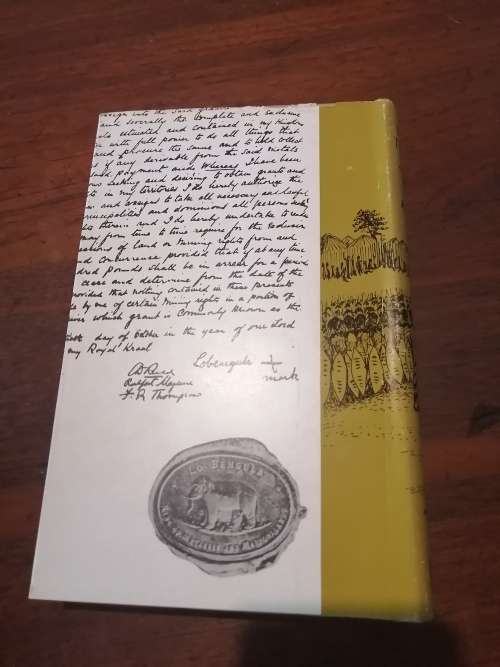 assign into the said grantees
and severally the complete and exclusive
als situated and contained in my Kingdo
er with full power to do all things that
and procure the same and to hold collect
if any derivable from the said metals
said payment and Whereas I have been
ons seeking and desiring to obtain grants and
ts in my territories I do hereby authorize the
ns and assigns to take all necessary and lawful
principalities and dominions all persons seeki
hts therein and I do hereby undertake to rende
may from time to time require for the exclusion
essions of land or mining rights from and
nd concurrence provided that if at any time
dred pounds shall be in arrear for a period
cease and determine from the date of the
rovided that nothing contained in these presents
e by me of certain mining rights in a portion of
iver which grant is commonly known as the
day of October in the year of our Lord
my Royal Kraal
Lobengula X
mark
C D Rudd
Rochfort Maguire
F. R. Thompson
LO BENGULA